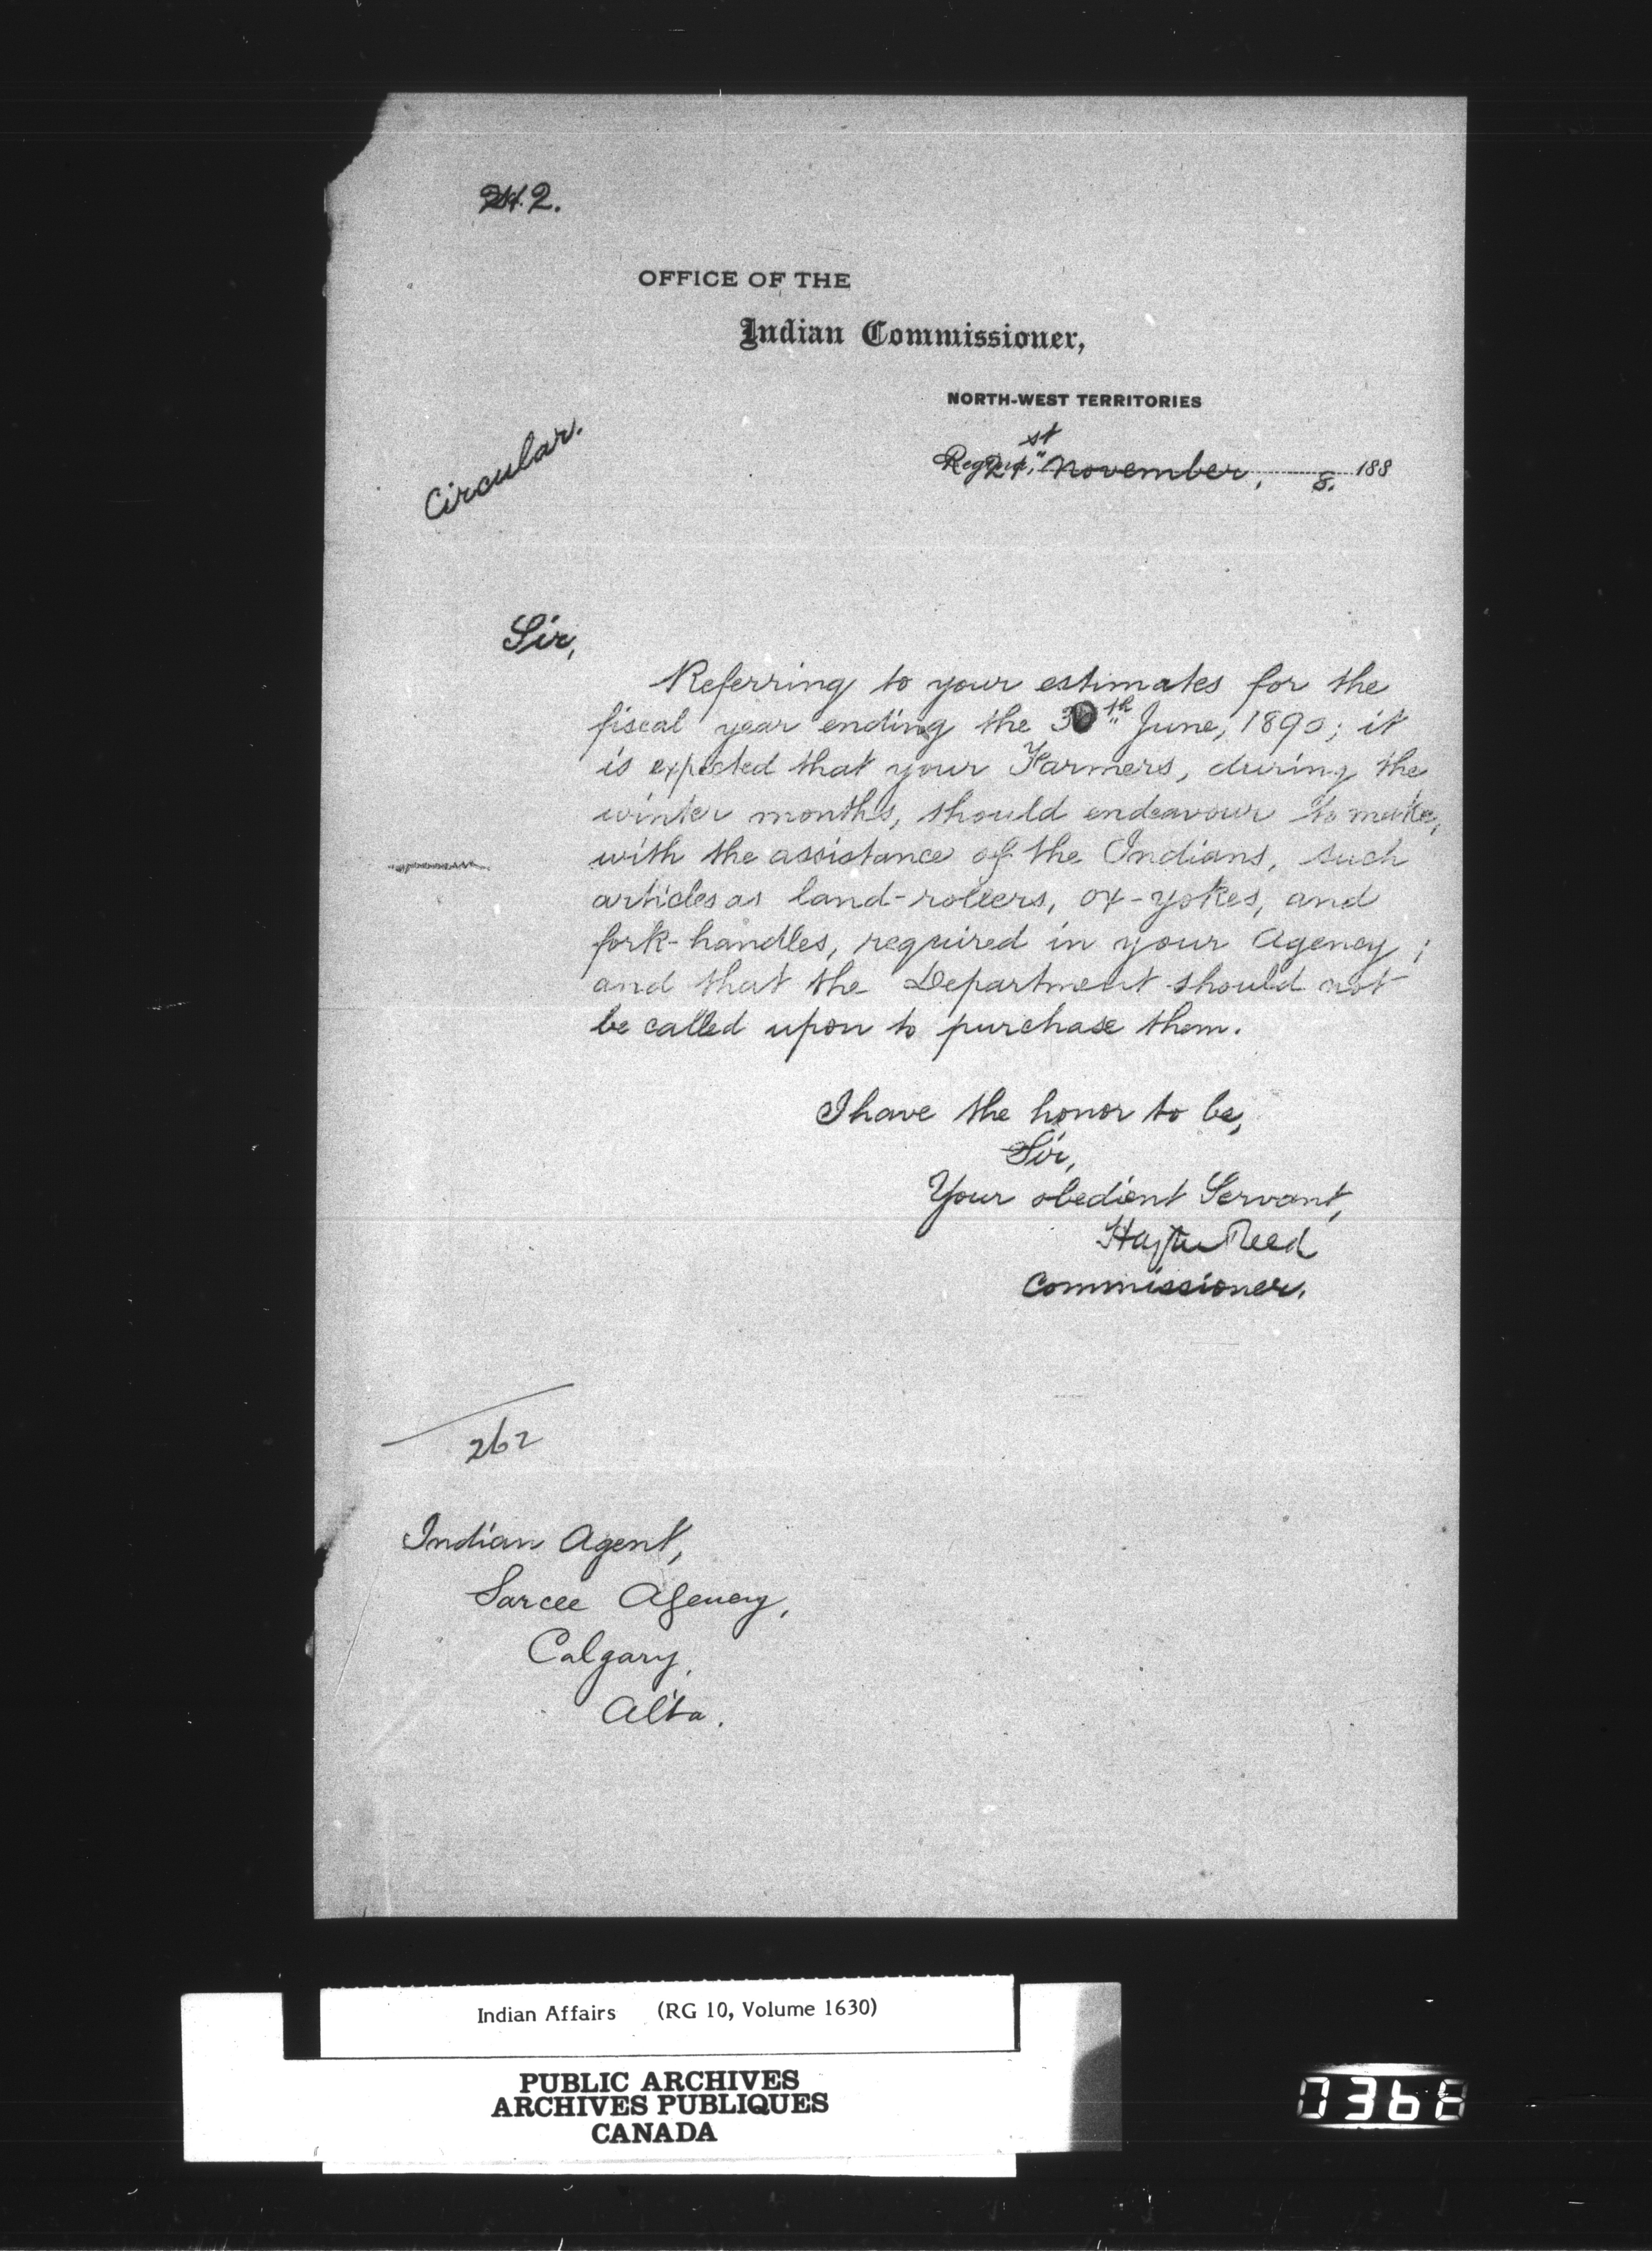 2.
OFFICE OF THE
Indian Commissioner,
NORTH-WEST TERRITORIES
Circular.
Regina, 21st November, 8. 188
Sir,
Referring to your estimates for the
fiscal year ending the 30th June, 1890; it
is expected that your Farmers, during the
winter months, should endeavour to make,
with the assistance of the Indians, such
articles as land-rollers, ox-yokes, and
fork-handles, required in your Agency;
and that the Department should not
be called upon to purchase them.
I have the honor to be,
Sir,
Your obedient Servant,
Hayter Reed
Commissioner.
262
Indian Agent,
Sarcee Agency,
Calgary,
Alta.
Indian Affairs (RG 10, Volume 1630)
PUBLIC ARCHIVES
ARCHIVES PUBLIQUES
CANADA
0368